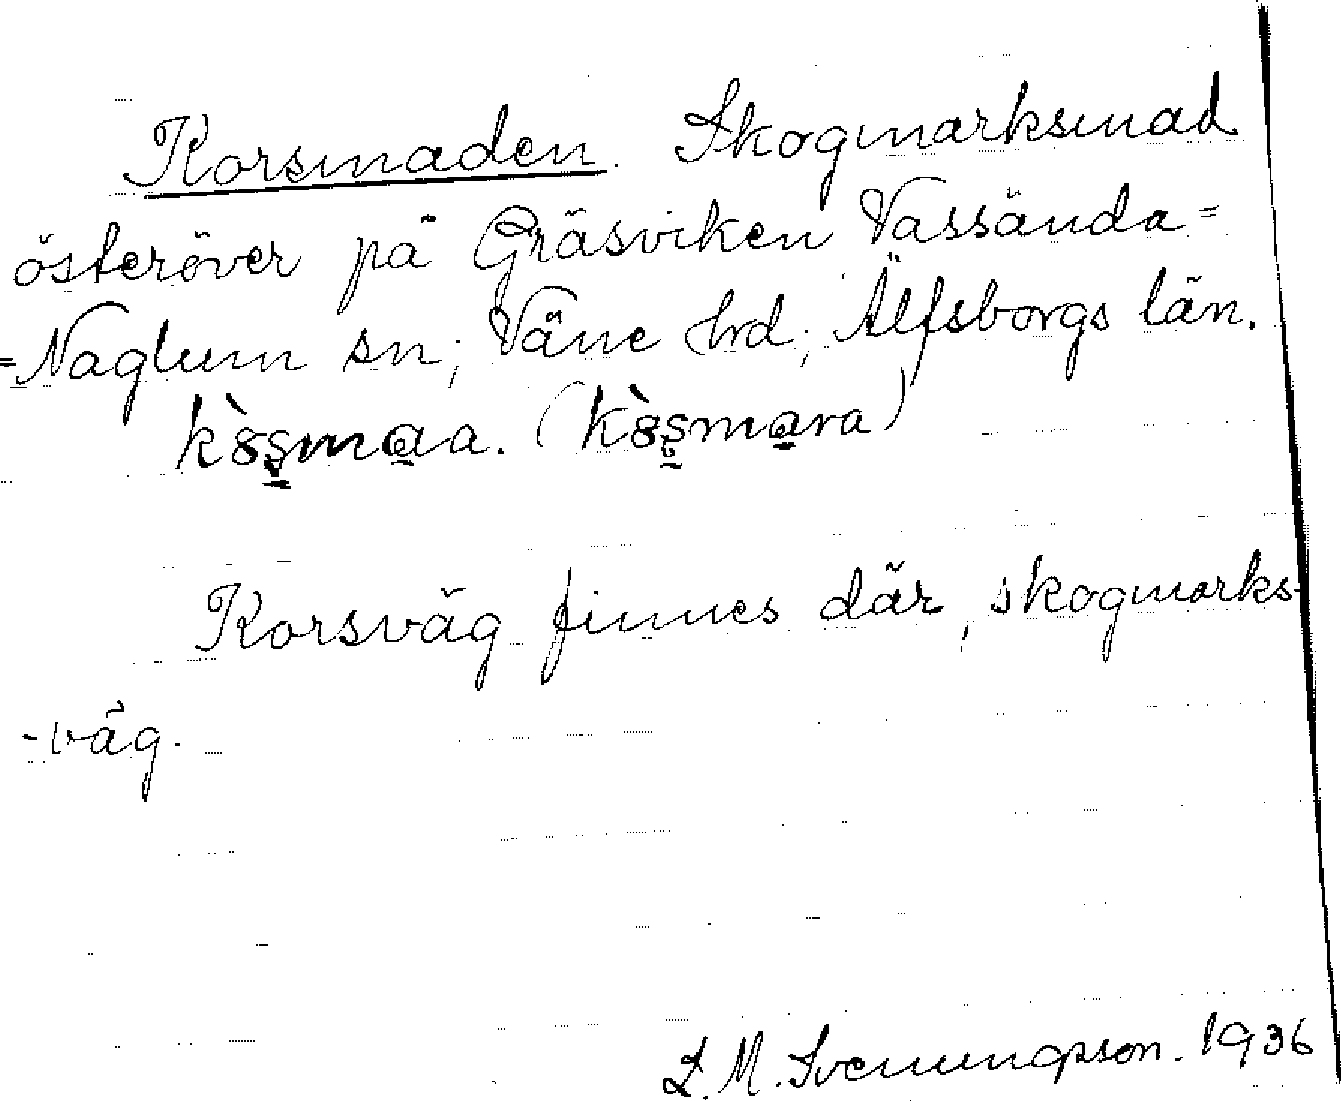 Korsmaden. Skogmarksmad
österöver på Gräsviken Vassända=
=Naglum sn; Väne hrd; Älfsborgs län.
kòs̱ma̱a. (kòs̱ma̱ra)
Korsväg finnes där, skogmarks-
-väg.
L. M. Svenungsson. 1936